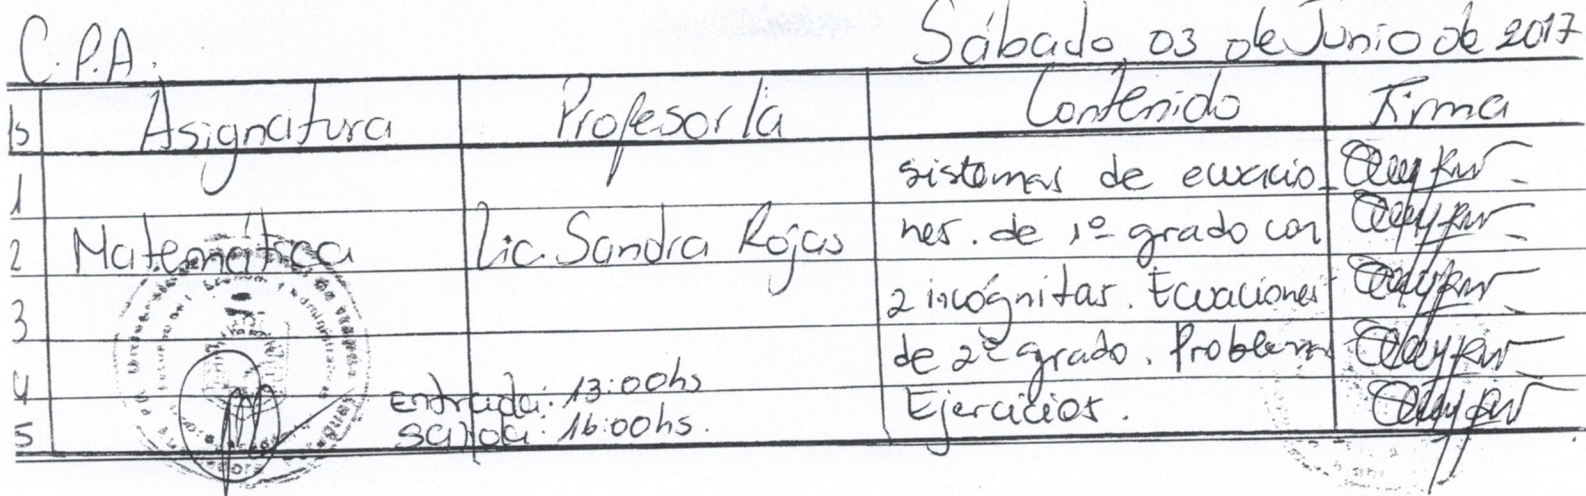 C.P.A. Sábado 03 de Junio de 2017
hs Asignatura Profesor/a Contenido Firma
1 sistemas de ecuacio-
2 Matemática Lic. Sandra Rojas nes. de 1º grado con
3 2 incógnitas. Ecuaciones
4 entrada: 13:00hs de 2º grado. Problemas
5 salida: 16:00hs. Ejercicios.